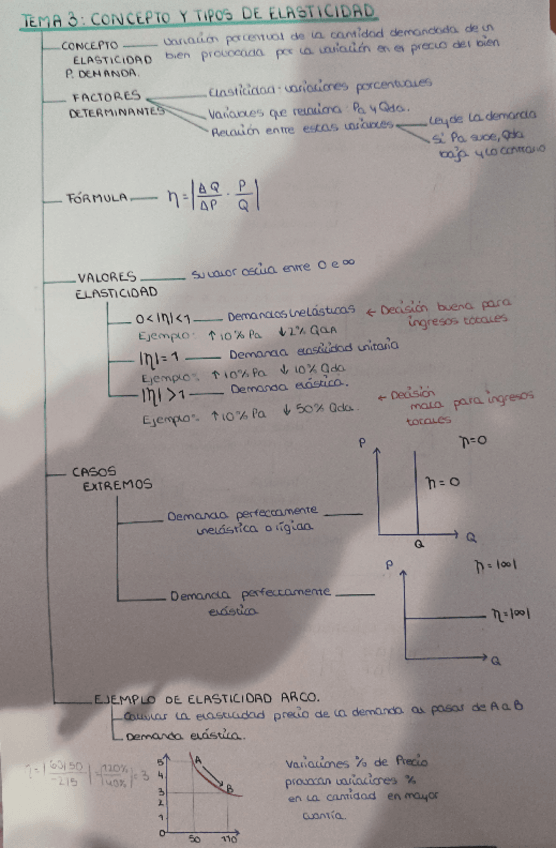 TEMA 3: CONCEPTO Y TIPOS DE ELASTICIDAD
CONCEPTO ELASTICIDAD P. DEMANDA.
variación porcentual de la cantidad demandada de un
bien provocada por la variación en el precio del bien
FACTORES DETERMINANTES
Elasticidad: variaciones porcentuales
Variables que relaciona: Pa y Qda.
Relación entre estas variables
Ley de la demanda
si Pa sube, Qda
baja y lo contrario
FÓRMULA
η = |ΔQ/ΔP · P/Q|
VALORES ELASTICIDAD
su valor oscila entre 0 e ∞
0<|η|<1 Demandas inelásticas ← Decisión buena para
ingresos totales
Ejemplo: ↑10% Pa ↓2% QdA
|η|=1 Demanda elasticidad unitaria
Ejemplo: ↑10% Pa ↓10% Qda
|η|>1 Demanda elástica.
Ejemplo: ↑10% Pa ↓50% Qda. ← Decisión
mala para ingresos
totales
CASOS
EXTREMOS
Demanda perfectamente
inelástica o rígida
P
η=0
η=0
Q
Q
Demanda perfectamente
elástica
P
η=|∞|
η=|∞|
Q
EJEMPLO DE ELASTICIDAD ARCO.
Calcular la elasticidad precio de la demanda al pasar de A a B
Demanda elástica.
η=|60/50 / -2/5| = |120% / 40%| = 3
5
4
3
2
1
0
A
B
50
110
Variaciones % de Precio
provocan variaciones %
en la cantidad en mayor
cuantía